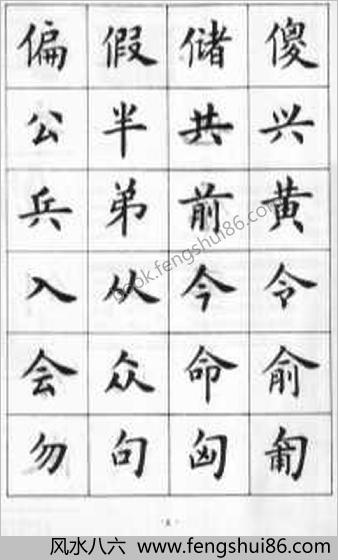 偏 假 储 傻
公 半 共 兴
兵 弟 前 黄
入 从 今 令
会 众 命 俞
勿 句 匈 匍
book.fengshui86.com
风水八六 www.fengshui86.com